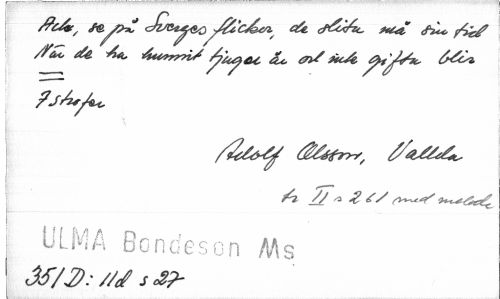 Ack, se på Sverges flickor, de slita må sin tid
När de ha hunnit tjuger år och inte gifta blir
7 strofer
Adolf Olsson, Vallda
tr II s 261 med melodi
ULMA Bondeson Ms
351 D: 11d s 27